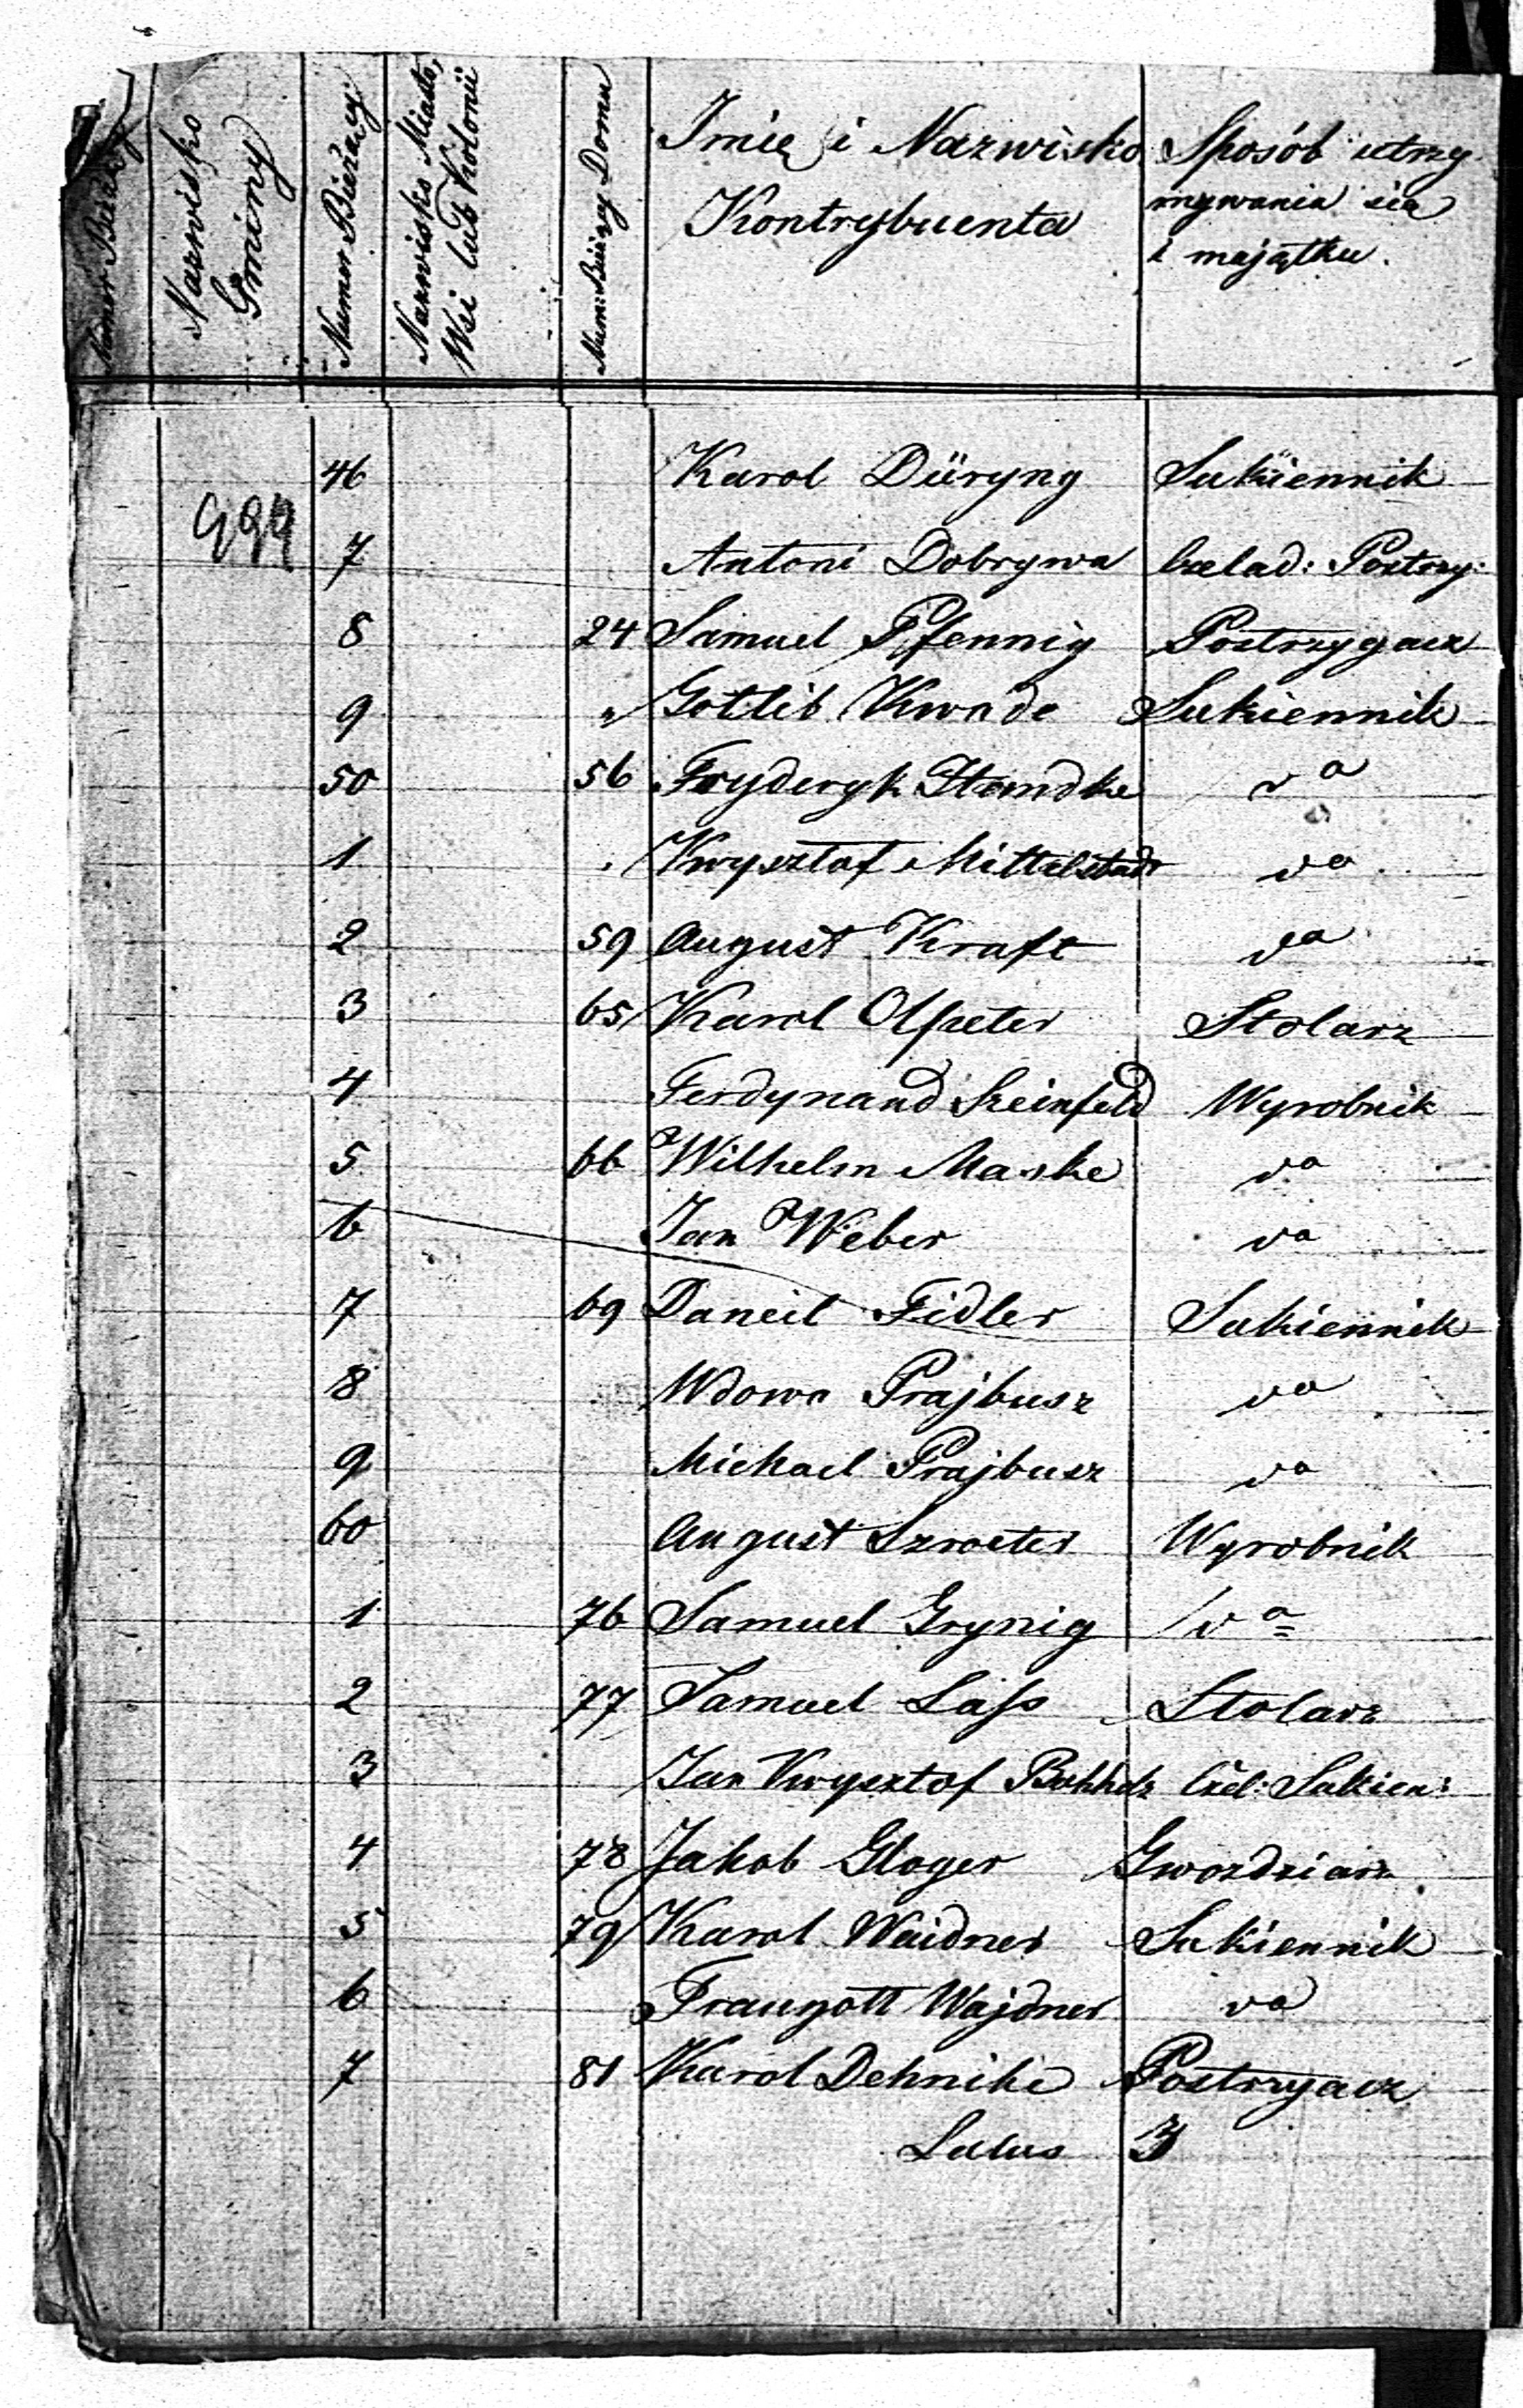 Numer Bieżący
Nazwisko Gminy
Numer Bieżący
Nazwisko Miasta, Wsi lub Kolonii
Num: Bieżący Domu
Imię i Nazwisko Kontrybuenta
Sposób utrzymywania się i majątku.
46 Karol Düryng Sukiennik
7 Antoni Dobrywa Czelad: Postrzy:
8 24 Samuel Pfennig Postrzygacz
9 " Gotlib Kwade Sukiennik
50 56 Fryderyk Standke va
1 " Krysztof Mittelstadt va
2 59 August Kraft va
3 65 Karol Olpeter Stolarz
4 Ferdynand Szeinfeld Wyrobnik
5 66 Wilhelm Maske va
6 Jan Weber va
7 69 Daneil Fidler Sukiennik
8 Wdowa Prajbusz va
9 Michael Prajbusz va
60 August Szroeter Wyrobnik
1 76 Samuel Grynig va
2 77 Samuel Lass Stolarz
3 Jan Krysztof Czel: Sukien:
4 78 Jakob Gloger Gwozdziarz
5 79 Karol Waidner Sukiennik
6 Traugott Wajdner va
7 81 Karol Dehnike Postrzygacz
Latus 3